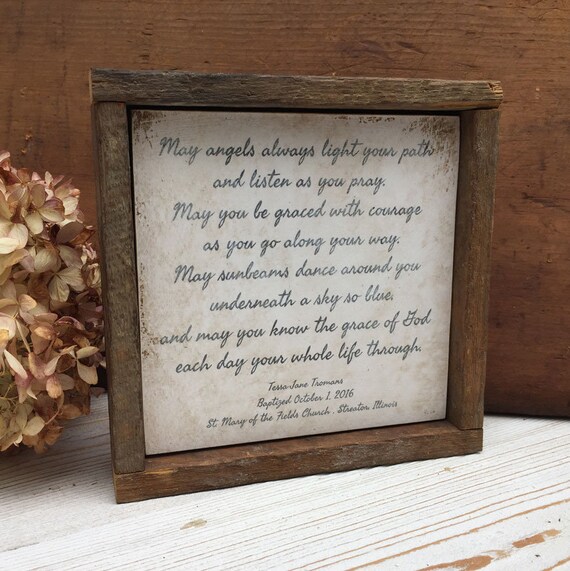 May angels always light your path
and listen as you pray.
May you be graced with courage
as you go along your way.
May sunbeams dance around you
underneath a sky so blue,
and may you know the grace of God
each day your whole life through.
Tessa Jane Tromans
Baptized October 1, 2016
St. Mary of the Fields Church . Streator, Illinois